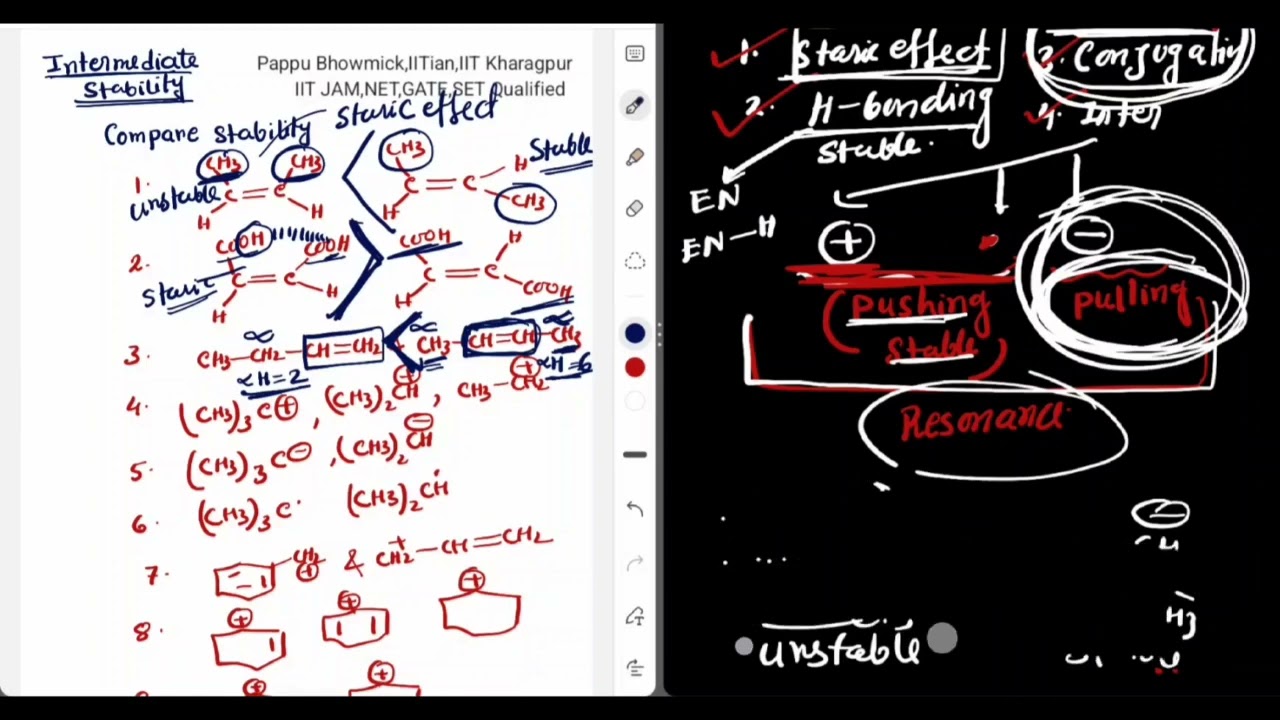 Intermediate
Stability
Pappu Bhowmick,IITian,IIT Kharagpur
IIT JAM,NET,GATE,SET Qualified
Compare Stability
Staric effect
1.
CH3 CH3
C=C
H H
unstable
CH3 H
C=C
H CH3
Stable
2.
COOH COOH
C=C
H H
Staric
COOH H
C=C
H COOH
3. CH3-CH2-CH=CH2 < CH3-CH=CH-CH3
∝ ∝ ∝
∝H=2 ∝H=6
4. (CH3)3C⊕, (CH3)2CH⊕, CH3-CH2⊕
5. (CH3)3C⊖, (CH3)2CH⊖
6. (CH3)3C· (CH3)2CH·
7. CH2⊕ & CH2+-CH=CH2
8. ⊕ ⊕ ⊕
⊕ ⊕
1. Staric effect 3. Conjugation
2. H-bonding 4. Inter
Stable.
EN
EN-H
⊕ ⊖
(Pushing pulling
Stable)
Resonance
H3
unstable